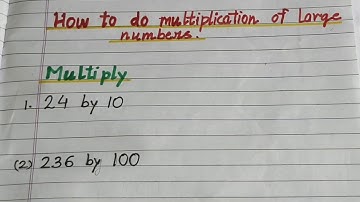 How to do multiplication of large
numbers.
Multiply
1. 24 by 10
(2) 236 by 100